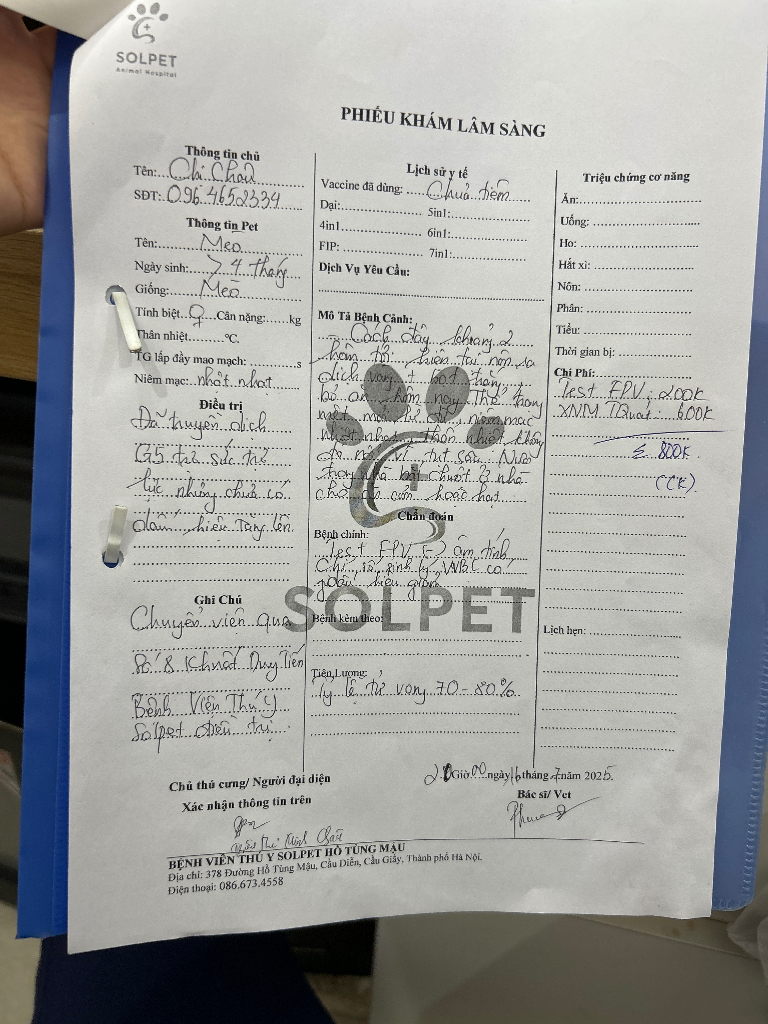 SOLPET
Animal Hospital
PHIẾU KHÁM LÂM SÀNG
Thông tin chủ
Tên: Chị Châu
SĐT: 096 4652334
Thông tin Pet
Tên: Mèo
Ngày sinh: > 4 tháng
Giống: Mèo
Tính biệt: ♀ Cân nặng: kg
Thân nhiệt °C.
TG lấp đầy mao mạch: s
Niêm mạc: nhợt nhạt
Điều trị
Đã truyền dịch
G5 trợ sức trợ
lực nhưng chưa có
dấu hiệu tăng lên
Ghi Chú
Chuyển viện qua
Số 8 Khuất Duy Tiến
Bệnh Viện Thú Y
Solpet điều trị
Lịch sử y tế
Vaccine đã dùng: Chưa tiêm
Dại: 5in1:
4in1 6in1:
FIP: 7in1:
Dịch Vụ Yêu Cầu:
Mô Tả Bệnh Cảnh:
Cách đây khoảng 2
hôm hiện tại nôn ra
dịch vàng + bọt trắng,
bỏ ăn hôm nay. Thể trạng
mệt mỏi, niêm mạc
nhợt nhạt, thân nhiệt không
đo nổi vì tụt sâu. Nước
trong nhà bắt chuột ở nhà
hoặc hạt
Chẩn đoán
Bệnh chính:
Test FPV (-) âm tính
Chỉ số sinh lý WBC có
dấu hiệu giảm
SOLPET
Bệnh kèm theo:
Tiên Lượng:
Tỷ lệ tử vong 70 - 80%
Triệu chứng cơ năng
Ăn:
Uống:
Ho:
Hắt xì:
Nôn:
Phân:
Tiểu:
Thời gian bị:
Chi Phí:
Test FPV: 200K
XNM TQuát: 600K
Σ 800K
(CK)
Lịch hẹn:
Chủ thú cưng/ Người đại diện
Xác nhận thông tin trên
Minh Châu
Giờ 00 ngày 16 tháng 7 năm 2025
Bác sĩ/ Vet
BỆNH VIỆN THÚ Y SOLPET HỒ TÙNG MẬU
Địa chỉ: 378 Đường Hồ Tùng Mậu, Cầu Diễn, Cầu Giấy, Thành phố Hà Nội.
Điện thoại: 086.673.4558